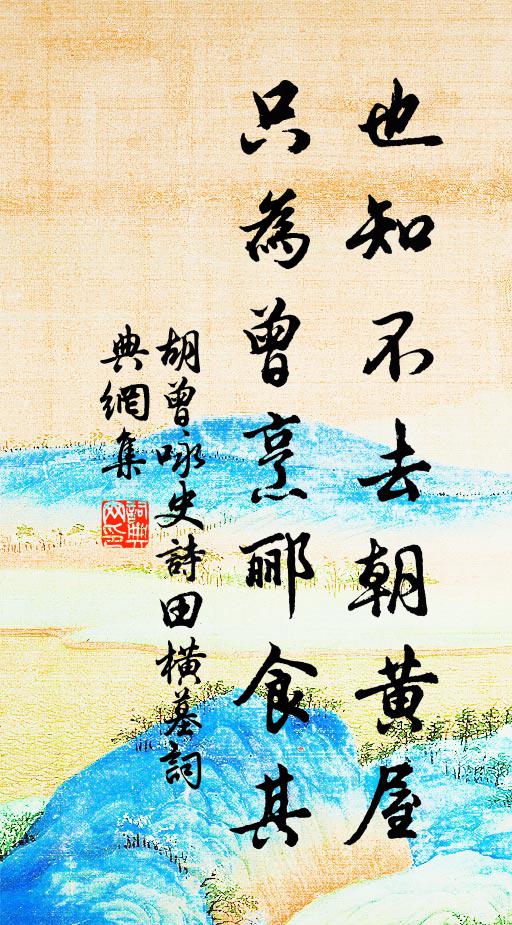 也知不去朝黃屋
只為曾烹酈食其
胡曾咏史詩田橫墓詞
典網集
詞典網印